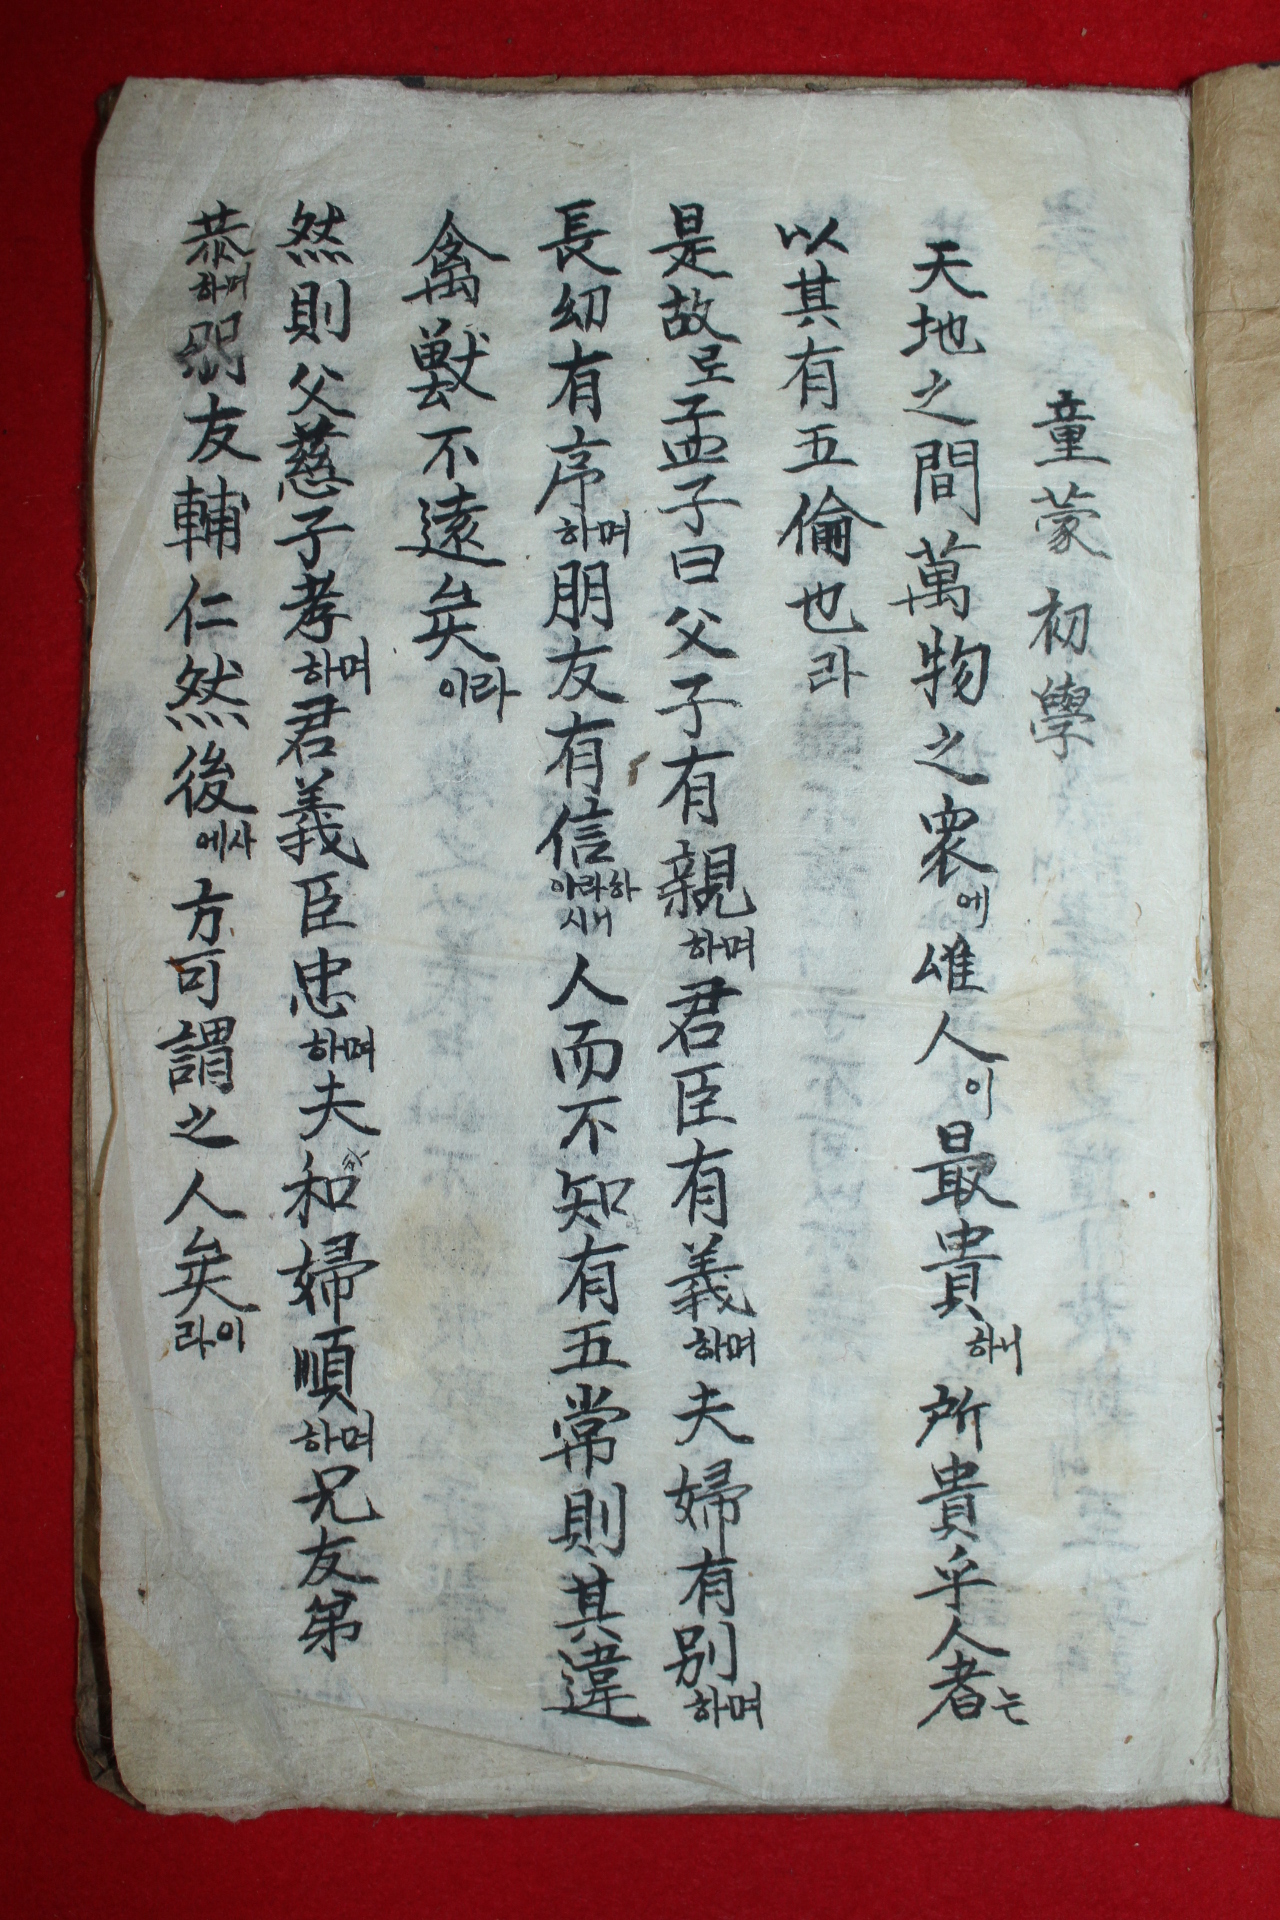 童蒙初學
天地之間萬物之衆에 唯人이 最貴하니 所貴乎人者는
以其有五倫也라
是故로 孟子曰父子有親하며 君臣有義하며 夫婦有別하며
長幼有序하며 朋友有信아라하시니 人而不知有五常則其違
禽獸不遠矣이라
然則父慈子孝하며 君義臣忠하며 夫和婦順하며 兄友弟
恭하며 友輔仁然後에사 方可謂之人矣라이